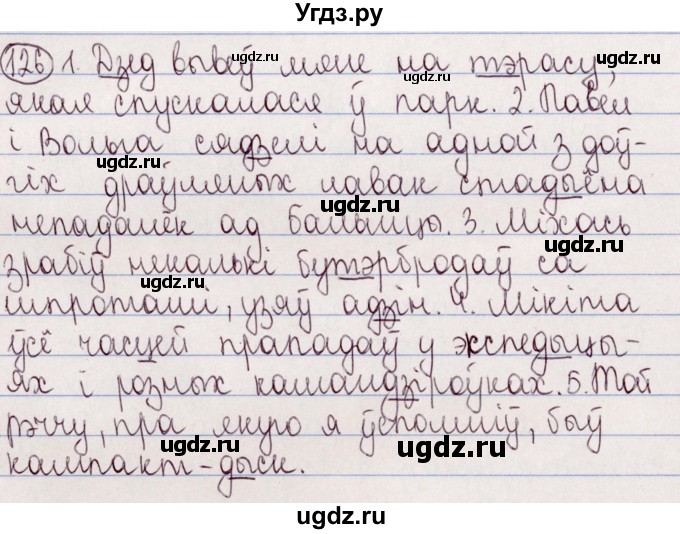 Угдз.ру
126 1. Дзед вывеў мяне на тэрасу,
якая спускалася ў парк. 2. Павел
і Вольга сядзелі на адной з доў-
гіх драўляных лавак стадыёна
непадалёк ад бальніцы. 3. Міхась
зрабіў некалькі бутэрбродаў са
шпротамі, узяў адзін. 4. Мікіта
ўсё часцей прападаў у экспедыцы-
ях і розных камандзіроўках. 5. Той
рэччу, пра якую я ўспомніў, быў
кампакт-дыск.
ugdz.ru
ugdz.ru
ugdz.ru
ugdz.ru
ugdz.ru
ugdz.ru
ugdz.ru
ugdz.ru
ugdz.ru
ugdz.ru
ugdz.ru
ugdz.ru